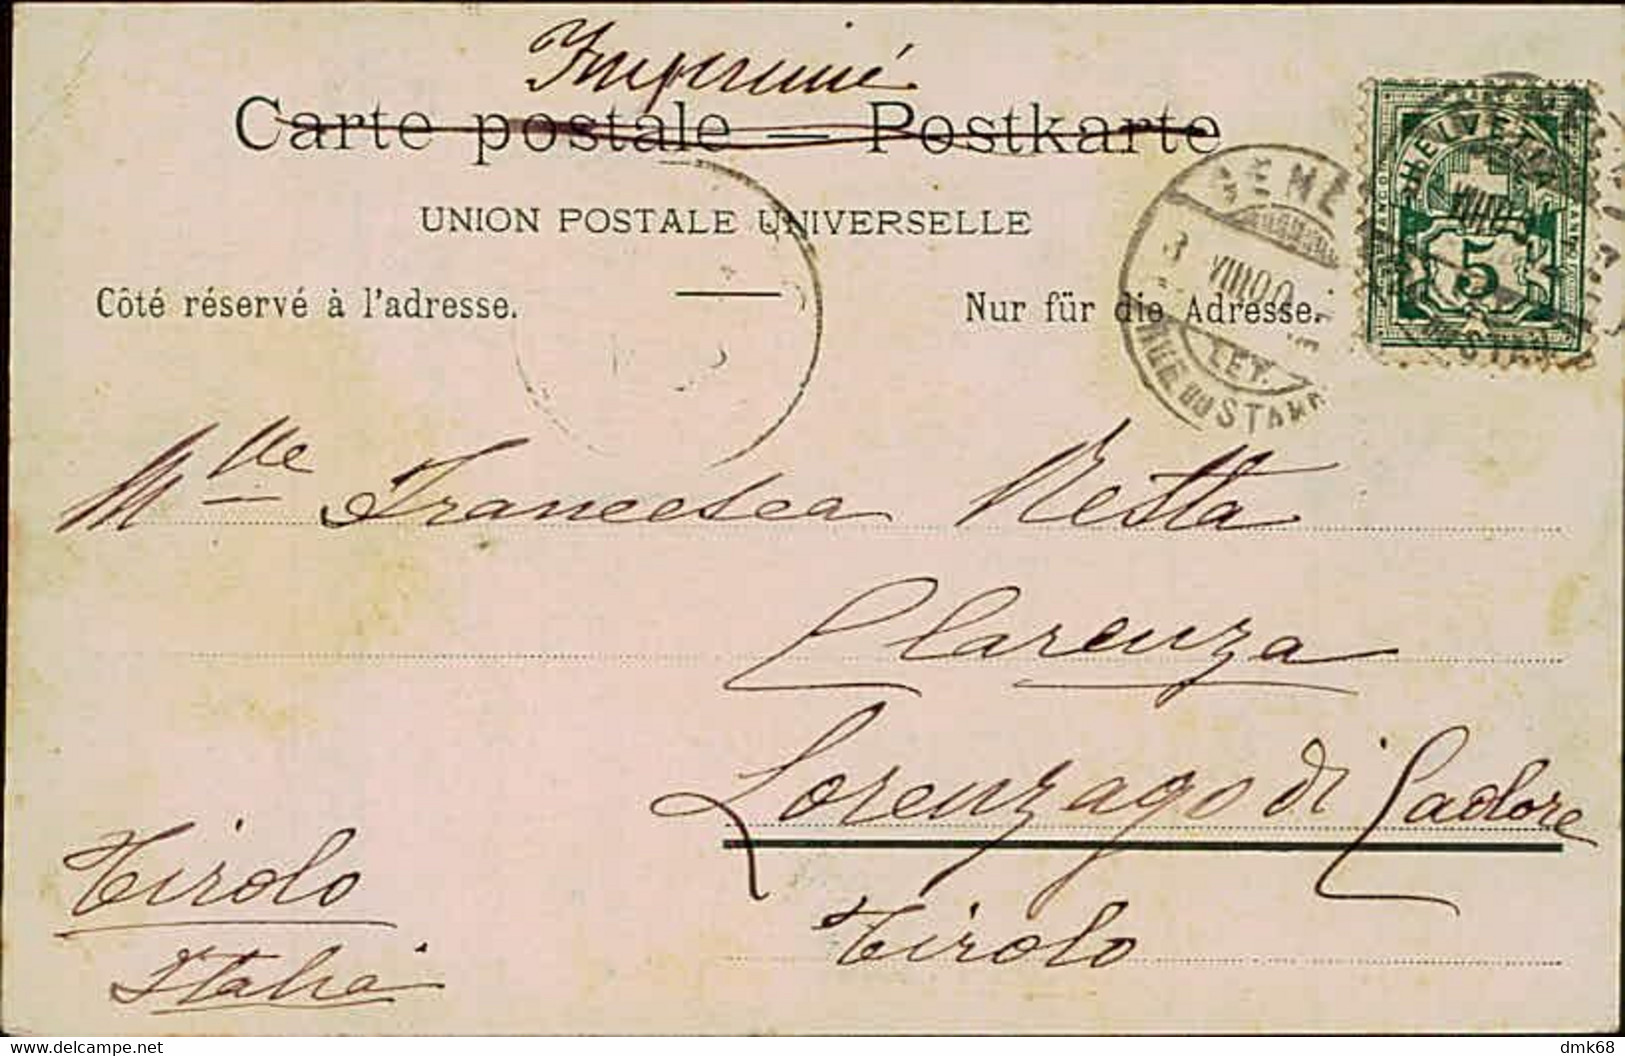 Imprimé
Carte postale — Postkarte
UNION POSTALE UNIVERSELLE
Côté réservé à l'adresse.
Nur für die Adresse.
HELVETIA
5
3 VIII 00
LET.
RUE DU STAND
Mlle Francesca Resta
Clarenza
Lorenzago di Cadore
Tirolo
Tirolo
Italia
delcampe.net
dmk68